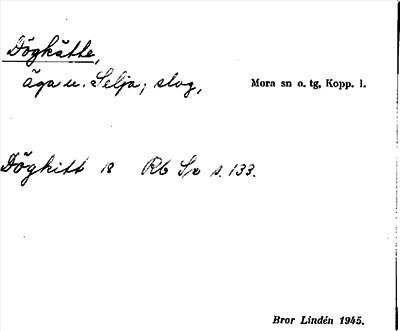 Dögkätte,
äga u. Selja; slog,
Mora sn o. tg, Kopp. l.
Dögkitt 18 Rb Sx s. 133.
Bror Lindén 1945.